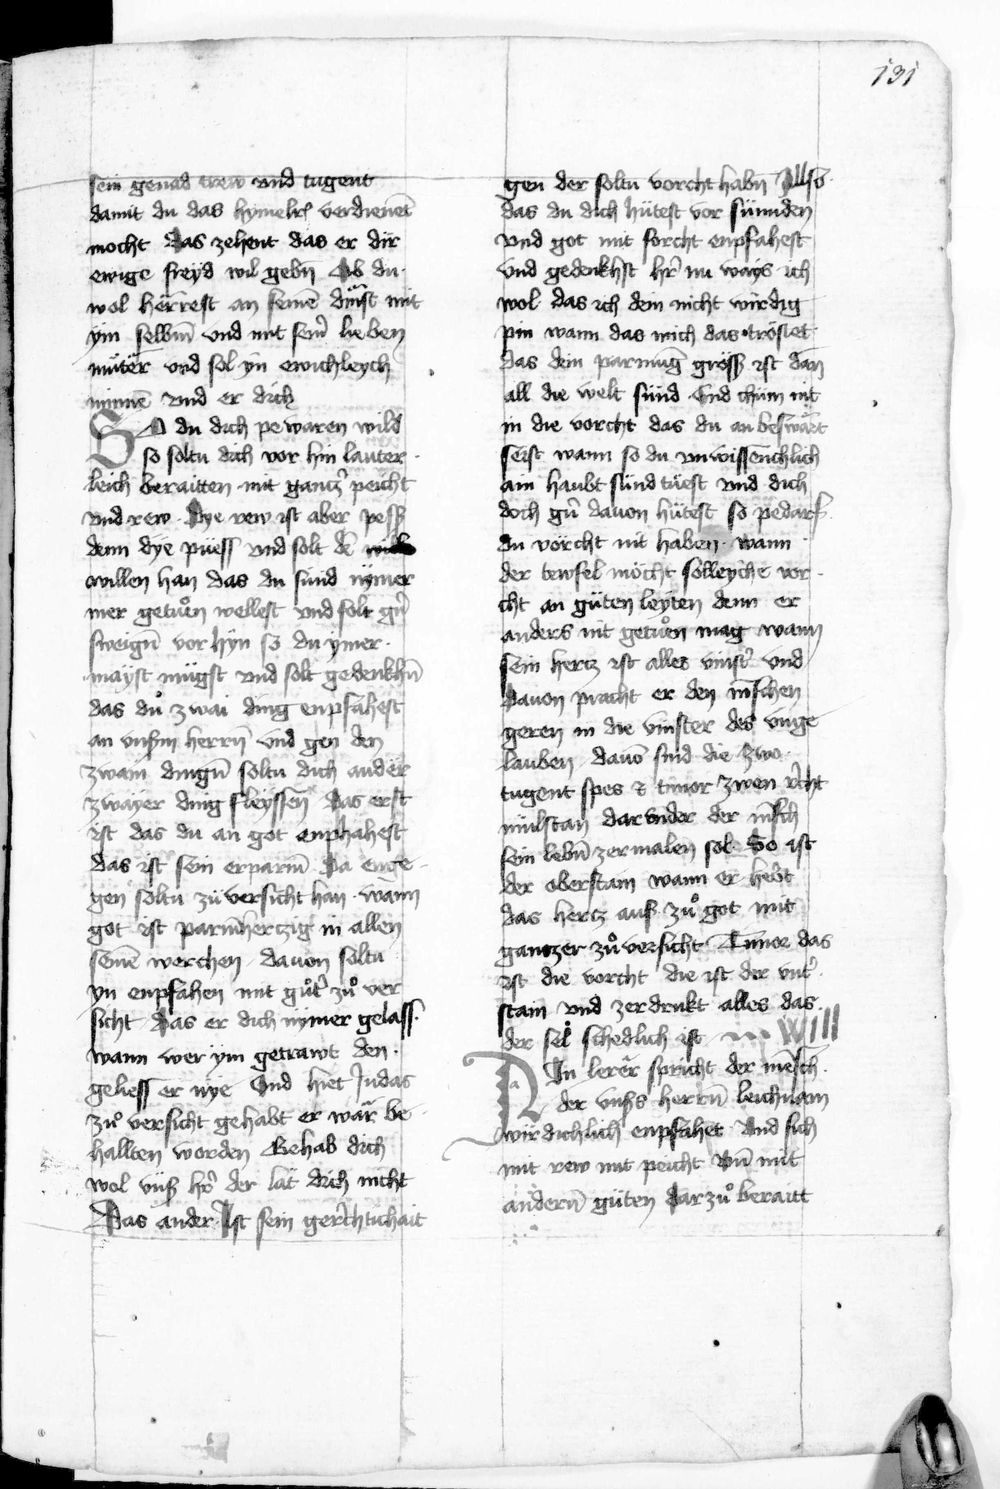 131
sein genad trew vnd tugent
damit du das hymelrſ verdienet
mocht Das zehent das er dir
ewige freyd wil gebn̄ Ab du
wol herrest an seinē dinst mit
ym selbm̄ vnd mit seinr̄ lieben
mūter vnd sol yn ewichleych
minnē vnd er dich
SO du dich pewaren wild
so soltu dich vor hin lauter
leich beraitten mit gantzr̄ peicht
vnd rew · Dye rew ist aber pessz
denn dye püess vnd solt dē
willen han das du sünd nÿmer
mer getuͦn wellest vnd solt gr̄n
sweign̄ vor hyn so du ymer
mayst mügst vnd solt gedenkhn̄
das duͦ zwai ding enpfahest
an vnßm herrn̄ vnd gen den
zwain dingn̄ soltu dich ander
zwayer ding fleyssen Das erst
ist das du an got enphahest
das ist sein erparm̄ Da enge
gen soltu zü versicht han · wann
got ist parmhertzig in allen
seinē werchen dauon soltu
yn enpfahen mit guͦtr̄ zuͦ ver
sicht Das er dich nymer gelass
wann wer ym getrawt den
geliess er nye Vnd hiet Judas
zuͦ versicht gehabt er war be
hallten worden Gehab dich
wol vnß hr̄ der lat dich nicht
Das ander Ist sein gerechtichait
gen der soltu vorcht habn̄ Allso
das du dich hütest vor sünnden
vnd got mit forcht enpfahest
vnd gedenkhst hr̄ nu ways ich
wol das ich dein nicht wirdig
pin wann das mich das tröstet
das dein parmūg gröss ist dān
all die welt sünd vnd chüm nit
in die vorcht das du an beswart
seist wann so du vnwissenchlich
ain haubt sünd täest vnd dich
doch gr̄n dauon hütest so pedarf
du vorcht nit haben · wann
der tewfel möcht solleyche vor
cht an güten leyten denn er
anders nit getuͦn mag wann
sein hertz ist alles vinstr̄ vnd
dauon pracht er den mēschen
geren in die vinster des vnge
lauben dauō sind die zwo
tugent spes & timor zwen recht
mülstan darvnder der mēsch
sein lebn̄ zermalen sol · So ist
der oberstain wann er hebt
das hertz auß zuͦ got mit
gantzer zuͦ versicht Timor das
ist die vorcht die ist der vntr̄
stain vnd zerdrukt alles das
der sel schedlich ist
AIn lerer spricht der mēsch
der vnßs herrn̄ leichnam
wirdichlich enpfähet Vnd sich
mit rew mit peicht Vn̄ mit
andern̄ güten darzuͦ beraitt